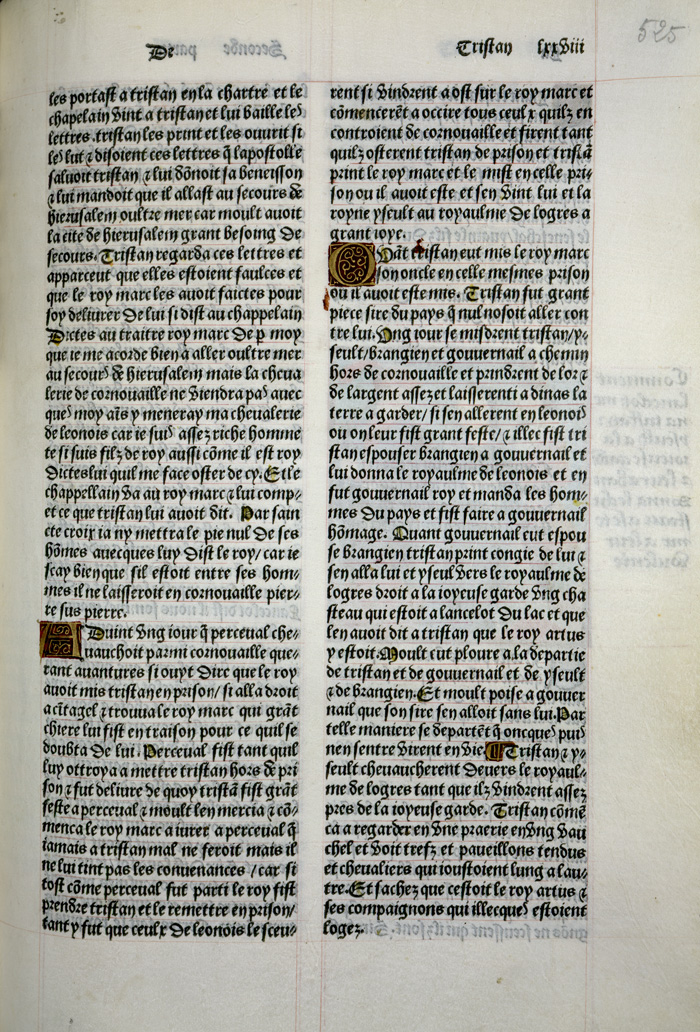 525
De Tristan lxxViii
les portast a tristan en la chartre et le
chapelain vint a tristan et lui bailla les
lettres. tristan les print et les ouurit si
les lut ⁊ disoient ces lettres q̃ lapostolle
saluoit tristan ⁊ lui dõnoit sa beneisson
⁊ lui mandoit que il allast au secours de
hierusalem oultre mer car moult auoit
la cite de hierusalem grant besoing de
secours. Tristan regarda ces lettres et
apparceut que elles estoient faulces et
que le roy marc les auoit faictes pour
soy deliurer de lui si dist au chappelain
Dictes au traitre roy marc de p̱ moy
que ie me acorde bien a aller oultre mer
au secours de hierusalem mais la cheua
lerie de cornouaille ne viendra pas auec
ques moy aĩs y meneray ma cheualerie
de leonois car ie suis assez riche homme
te si suis filz de roy aussi cõme il est roy
Dictes lui quil me face oster de cy. Et le
chappellain va au roy marc ⁊ lui comp⸗
et ce que tristan lui auoit dit. Par sain
cte croix ia ny mettra le pie nul de ses
hõmes auecques luy Dist le roy/ car ie
scay bien que sil estoit entre ses hom⸗
mes il ne laisseroit en cornouaille pier⸗
re sus pierre.
ADuint vng iour q̃ perceual che⸗
uauchoit parmi cornouaille que⸗
rant auantures si ouyt dire que le roy
auoit mis tristan en prison/ si alla droit
a cĩtagel ⁊ trouua le roy marc qui grãt
chiere lui fist en traison pour ce quil se
doubta de lui. Perceual fist tant quil
luy ottroya a mettre tristan hors de pri
son ⁊ fut deliure de quoy tristã fist grãt
feste a perceual ⁊ moult len mercia ⁊ cõ⸗
menca le roy marc a iurer a perceual q̃
iamais a tristan mal ne feroit mais il
ne lui tint pas les conuenances / car si
tost cõme perceual fut parti le roy fist
prendre tristan et le remettre en prison/
tant y fut que ceulx de leonois le sceu⸗
rent si vindrent a ost sur le roy marc et
cõmencerẽt a occire tous ceulx quilz en
controient de cornouaille et firent tant
quilz osterent tristan de prison et tristã
print le roy marc et le mist en celle pri⸗
son ou il auoit este et sen vint lui et la
royne yseult au royaulme de logres a
grant ioye.
QUãt tristan eut mis le roy marc
son oncle en celle mesmes prison
ou il auoit este mis. Tristan fut grant
piece sire du pays q̃ nul nosoit aller con
tre lui. Vng iour se misdrent tristan/ y⸗
seult/ brangien et gouuernail a chemin
hors de cornouaille et prindrent de lor ⁊
de largent assez et laisserent i a dinas la
terre a garder/ si sen allerent en leonois
ou on leur fist grant feste/ ⁊ illec fist tri
stan espouser brangien a gouuernail et
lui donna le royaulme de leonois et en
fut gouuernail roy et manda les hom⸗
mes du pays et fist faire a gouuernail
hõmage. Quant gouuernail eut espou
se brangien tristan print congie de lui ⁊
sen alla lui et yseul vers le royaulme de
logres droit a la ioyeuse garde vng cha
steau qui estoit a lancelot du lac et que
len auoit dit a tristan que le roy artus
y estoit. Moult eut ploure a la departie
de tristan et de gouuernail et de yseult
⁊ de brangien. Et moult poise a gouuer
nail que son sire sen alloit sans lui. Par
telle maniere se departẽt q̃ oncques puis
nen sentre virent en vie. ¶ Tristan ⁊ y⸗
seult cheuaucherent deuers le royaul⸗
me de logres tant que ilz vindrent assez
pres de la ioyeuse garde. Tristan cõmẽ
ca a regarder en vne praerie en vng vau
chel et voit trefz et paueillons tendus
et cheualiers qui ioustoient lung a lau⸗
tre. Et sachez que cestoit le roy artus ⁊
ses compaignons qui illecques estoient
logez.